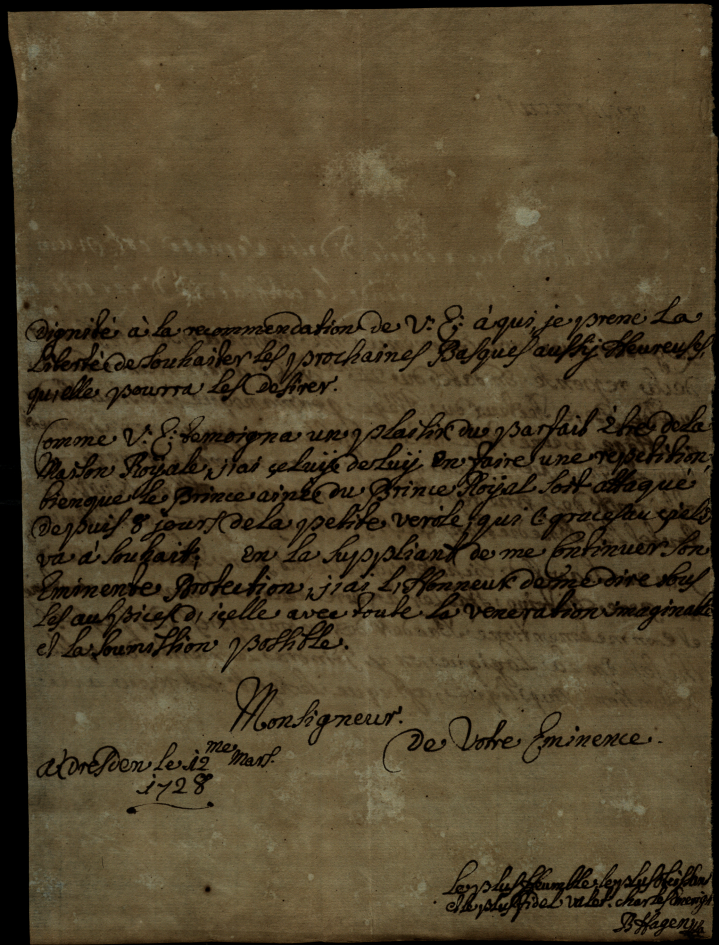 Dignité à la recommendation de V: E: à qui je prens La
Liberté de souhaiter les prochaines Pasques aussy Heureuses,
qu'elle pourra les desirer.
Comme V: E: temoigna un plaisir du parfait Etre de la
Maison Royale, j'ai de Luy en faire une repetition,
bienque le Prince ainé du Prince Royal soit attaqué
depuis 8 jours de la petite verole, qui
va à souhait; en La suppliant de me Continuer son
Eminente Protection, j'ai L'Honneur de me dire sous
les auspices d'icelle avec toute la veneration imaginable
et la soumission possible.
Monsigneur.
De Votre Eminence.
à Dresden le 12me Mars.
1728
Le plus Heumble le plus
et le plus fidel valet. Charles
B Hagen